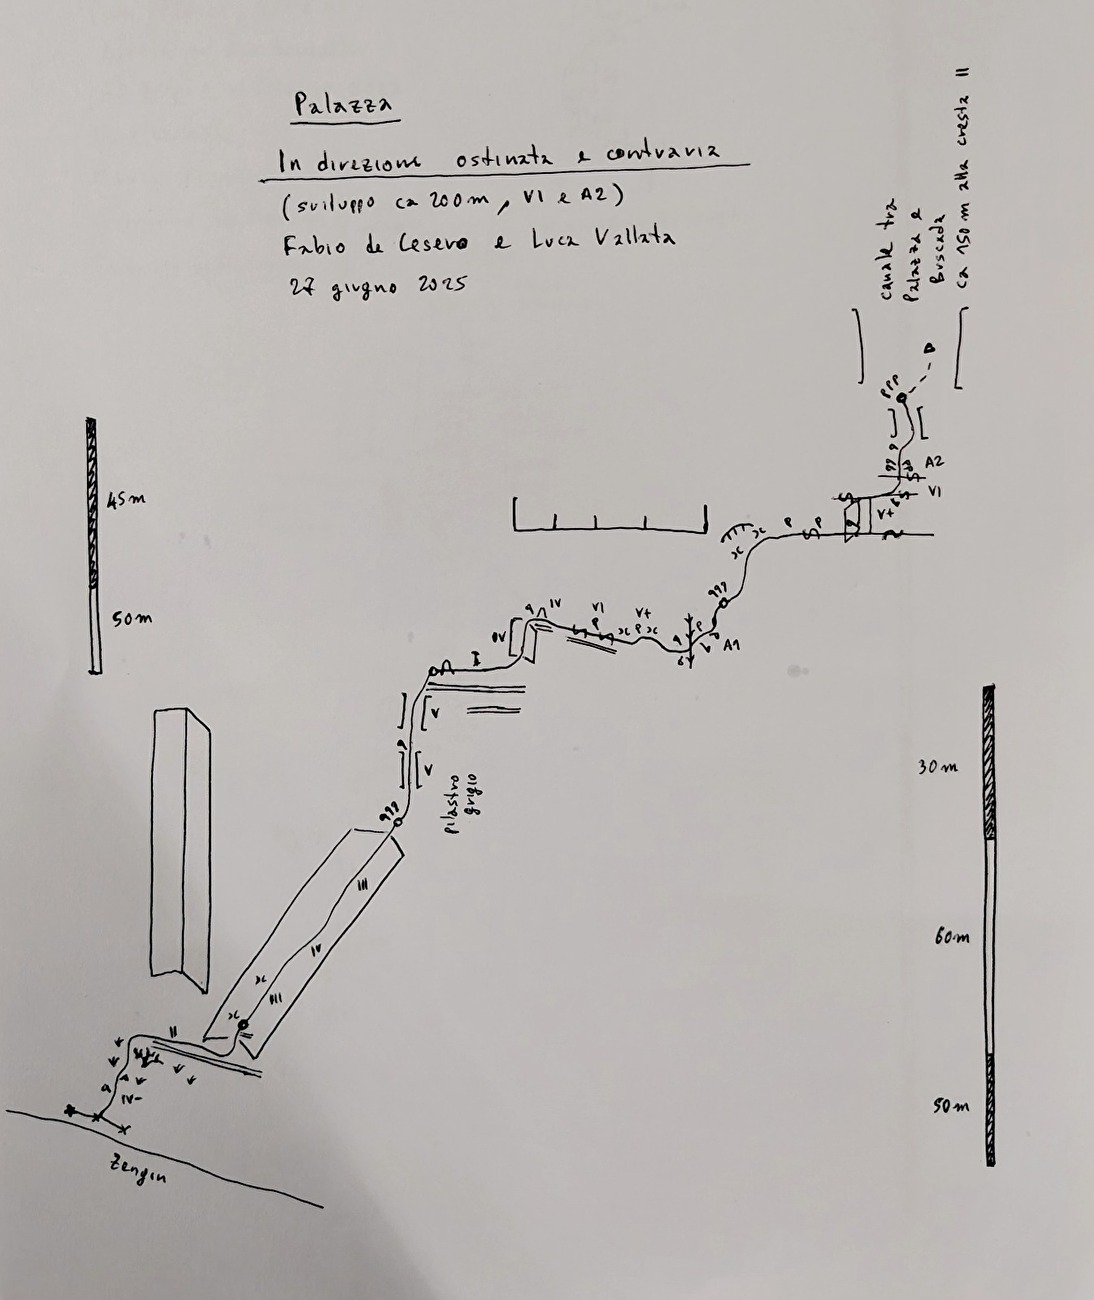 Palazza
In direzione ostinata e contraria
(sviluppo ca 200m, VI e A2)
Fabio de Cesero e Luca Vallata
27 giugno 2025
canale tra
Palazza e
Buscada
ca 150 m alla cresta II
A2
VI
V+
45m
50m
IV
VI
V+
IV
I
A1
V
V
Pilastro
grigio
30m
III
IV
60m
III
II
IV-
50m
Zengin